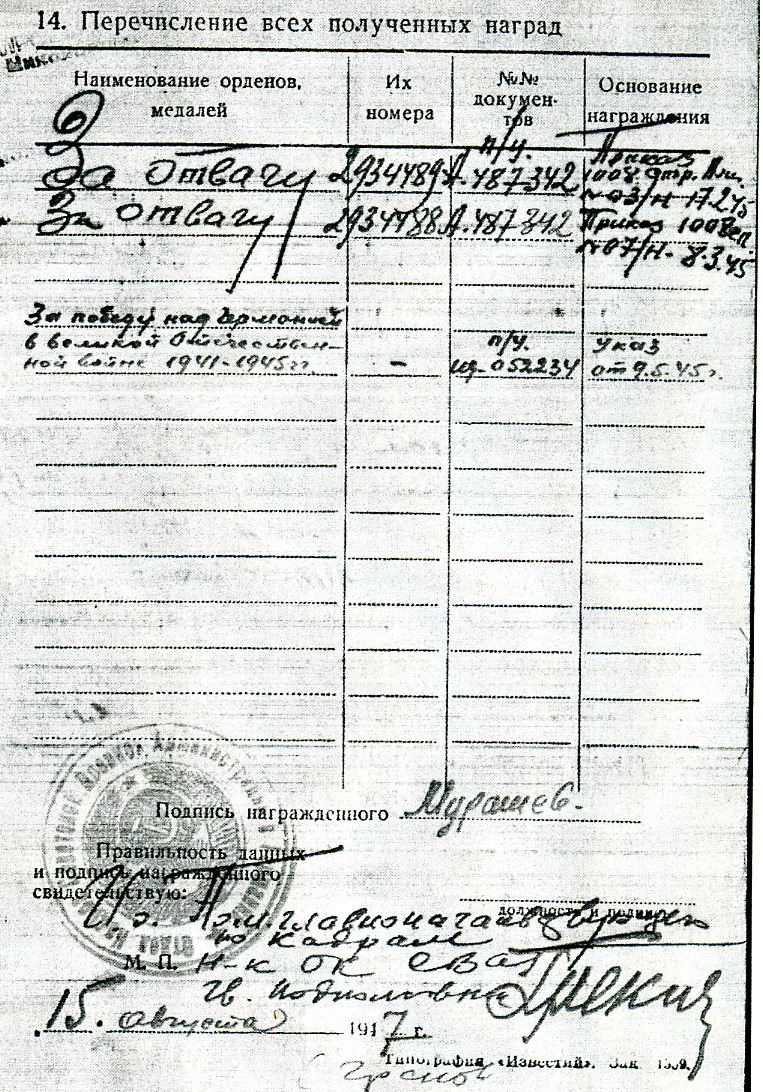 14. Перечисление всех полученных наград
Наименование орденов, медалей
Их номера
№№ документов
Основание награждения
За отвагу 2934489 п/у. А.487342 Приказ 1008 стр. №03/н 17.2.45
За отвагу 2934488 А.487342 Приказ 1008 сп №07/н- 8.3.45
За победу над Германией
в великой Отечествен-
ной войне 1941-1945 гг. – п/у. 052234 Указ от 9.5.45 г.
Подпись награжденного Мурашев.
Правильность данных
и подпись награжденного
свидетельствую:
должность и подпись
по кадрам
М. П. Н-к ОК СВАГ
15. августа 1947 г.
Типография «Известий». Зак. 1339.